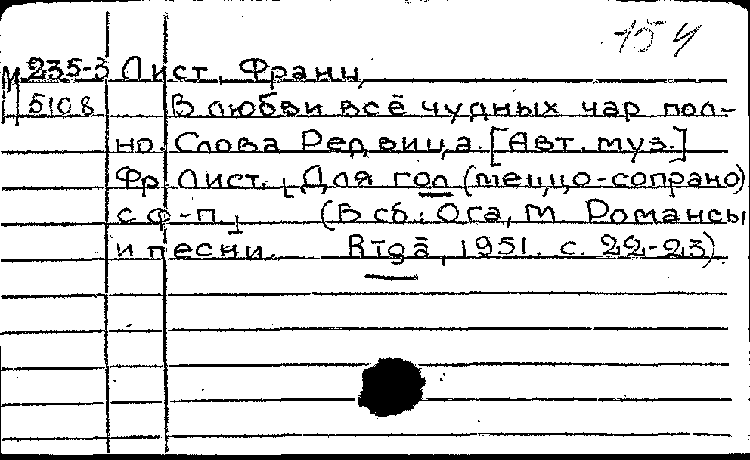 154
М 235-3 Лист, Франц
5108 В любви всё чудных чар пол-
но. Слова Редвица. [Авт. муз.]
Фр. Лист. Для гол (меццо-сопрано)
с ф-п. (В сб.: Ога, М. Романсы
и песни. Rīgā, 1951. с. 22-23)